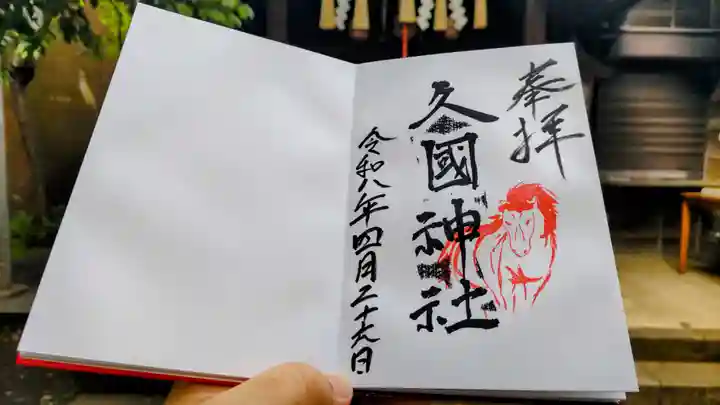 奉拝
久國神社
令和八年四月二十九日